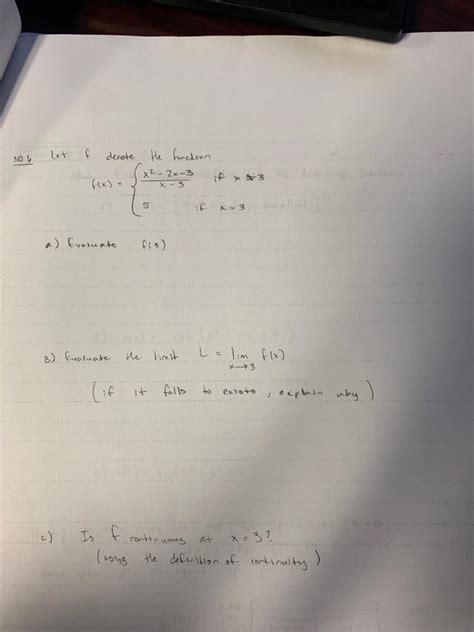 NO. 6 Let f denote the function
f(x) = { x² - 2x - 3 / x - 3 if x ≠ 3
5 if x = 3
a) Evaluate f(3)
B) Evaluate the limit L = lim x→3 f(x)
(if it fails to exists, explain why)
c) Is f continuous at x = 3?
(using the definition of continuity)